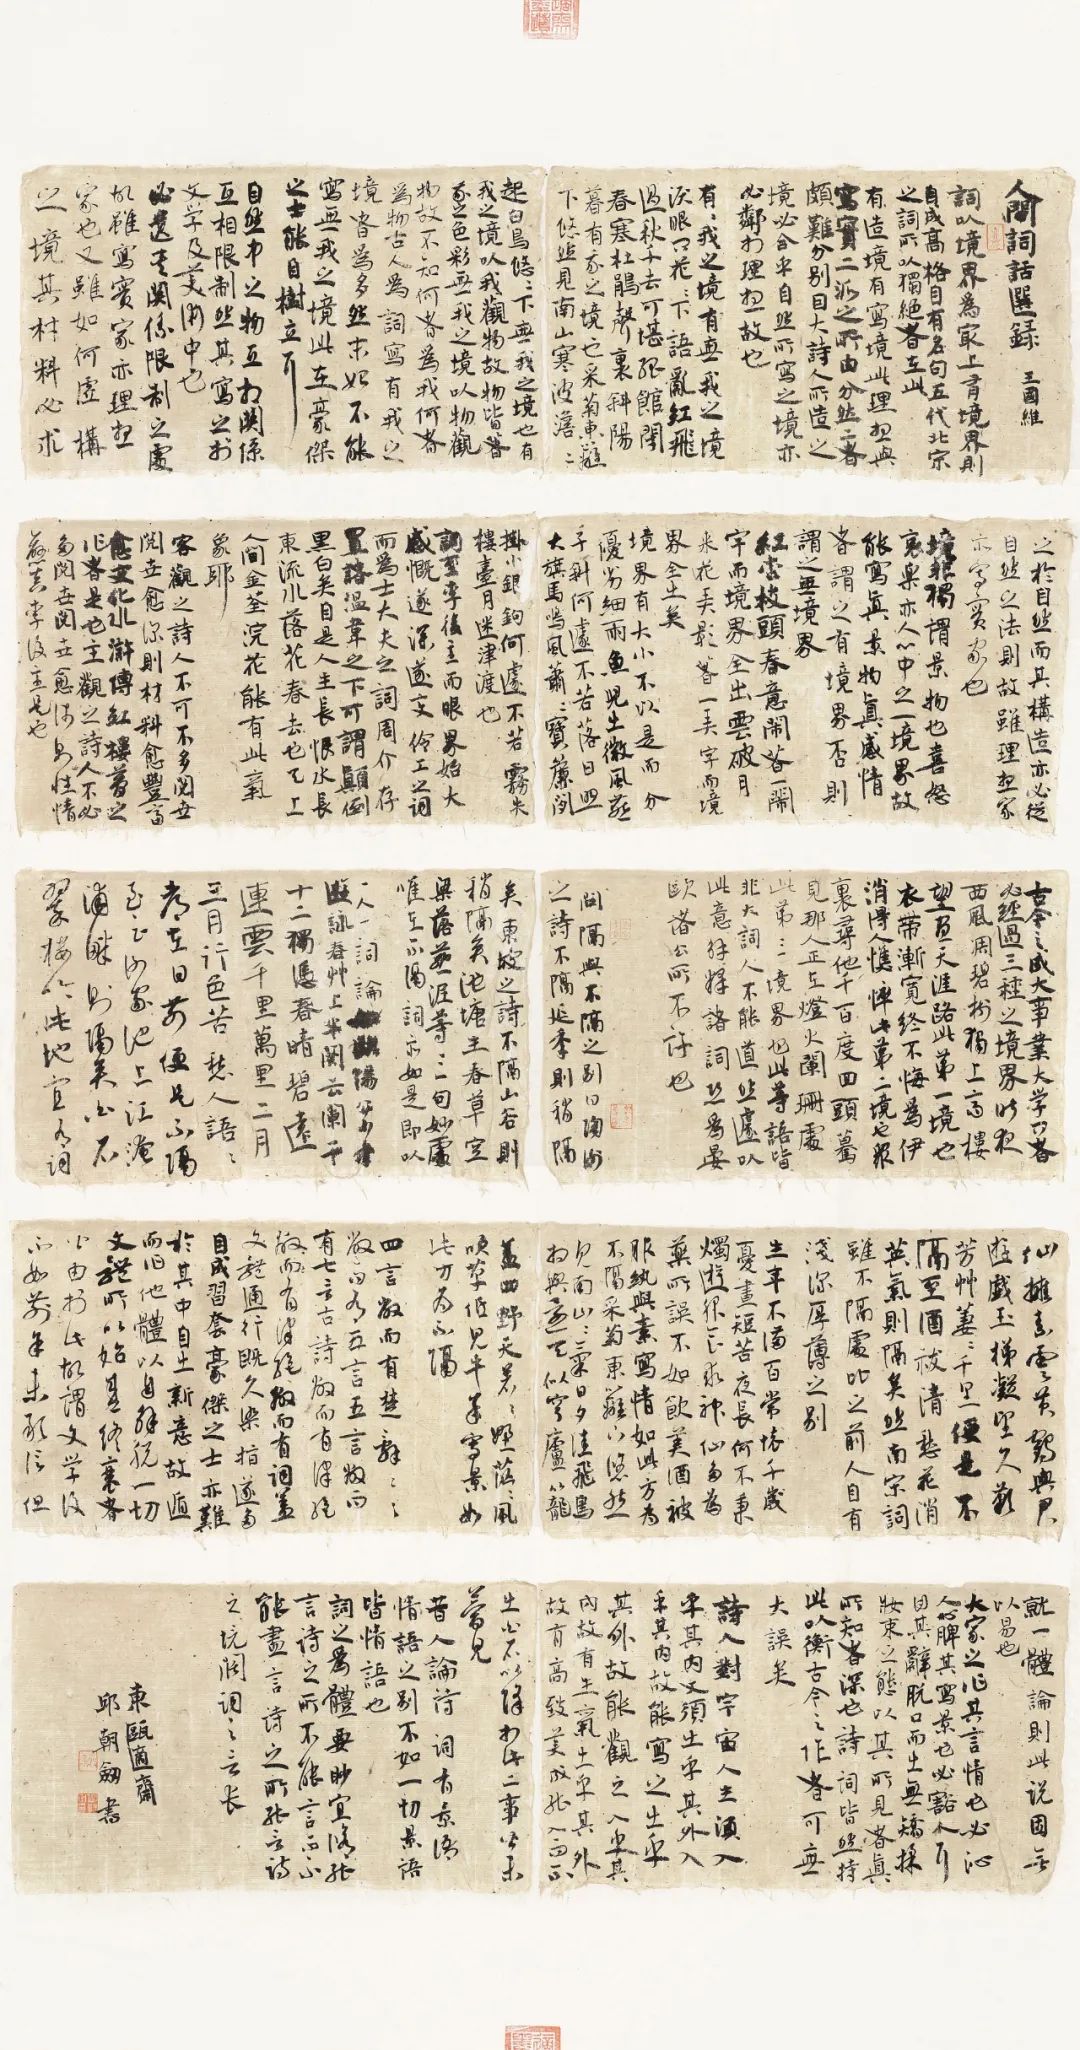 人間詞話選錄 王國維
詞以境界為最上有境界則
自成高格自有名句五代北宋
之詞所以獨絕者在此
有造境有寫境此理想與
寫實二派之所由分然二者
頗難分別因大詩人所造之
境必合乎自然所寫之境亦
必鄰於理想故也
有〻我之境有無我之境
淚眼問花〻不語亂紅飛
過秋千去可堪孤館閉
春寒杜鵑聲裏斜陽
暮有我之境也采菊東籬
下悠然見南山寒波澹〻
起白鳥悠〻下無我之境也有
我之境以我觀物故物皆著
我之色彩無我之境以物觀
物故不知何者為我何者
為物古人為詞寫有我之
境者為多然未始不能
寫無我之境此在豪傑
之士能自樹立耳
自然中之物互相關係
互相限制然其寫之於
文學及美術中也
必遺其關係限制之處
故雖寫實家亦理想
家也又雖如何虛構
之境其材料必求
之於自然而其構造亦必從
自然之法則故雖理想家
亦寫實家也
境非獨謂景物也喜怒
哀樂亦人心中之一境界故
能寫真景物真感情
者謂之有境界否則
謂之無境界
紅杏枝頭春意鬧著一鬧
字而境界全出雲破月
來花弄影著一弄字而境
界全出矣
境界有大小不以是而分
優劣細雨魚兒出微風燕
子斜何遽不若落日照
大旗馬鳴風蕭〻寶簾閒
掛小銀鉤何遽不若霧失
樓臺月迷津渡也
詞至李後主而眼界始大
感慨遂深遂變伶工之詞
而為士大夫之詞周介存
置諸溫韋之下可謂顛倒
黑白矣自是人生長恨水長
東流水落花春去也天上
人間金荃浣花能有此氣
象耶
客觀之詩人不可不多閱世
閱世愈深則材料愈豐富
愈變化水滸傳紅樓夢之
作者是也主觀之詩人不必
多閱世閱世愈淺則性情
愈真李後主是也
古今之成大事業大學問者
必經過三種之境界昨夜
西風凋碧樹獨上高樓
望盡天涯路此第一境也
衣帶漸寬終不悔為伊
消得人憔悴此第二境也眾
裏尋他千百度回頭驀
見那人正在燈火闌珊處
此第三境界也此等語皆
非大詞人不能道然遽以
此意解釋諸詞恐為晏
歐諸公所不許也
問隔與不隔之別曰陶謝
之詩不隔延年則稍隔
矣東坡之詩不隔山谷則
稍隔矣池塘生春草空
梁落燕泥等二句妙處
唯在不隔詞亦如是即以
一人一詞論歐陽公少年
遊詠春草上半闋云闌干
十二獨憑春晴碧遠
連雲千里萬里二月
三月行色苦愁人語〻
都在目前便是不隔
至云謝家池上江淹
浦畔則隔矣白石
翠樓吟此地宜有詞
仙擁素雲黃鶴與君
遊戲玉梯凝望久歎
芳草萋〻千里便是不
隔至酒祓清愁花消
英氣則隔矣然南宋詞
雖不隔處比之前人自有
淺深厚薄之別
生年不滿百常懷千歲
憂晝短苦夜長何不秉
燭遊服食求神仙多為
藥所誤不如飲美酒被
服紈與素寫情如此方為
不隔采菊東籬下悠然
見南山〻氣日夕佳飛鳥
相與還天似穹廬籠
蓋四野天蒼〻野茫〻風
吹草低見牛羊寫景如
此方為不隔
四言敝而有楚辭〻〻
敝而有五言五言敝而
有七言古詩敝而有律絕
敝而有律絕敝而有詞蓋
文體通行既久染指遂多
自成習套豪傑之士亦難
於其中自出新意故遁
而作他體以自解脫一切
文體所以始盛終衰者
皆由於此故謂文學後
不如前余未敢信但
就一體論則此說固無
以易也
大家之作其言情也必沁
人心脾其寫景也必豁人耳
目其辭脫口而出無矯揉
妝束之態以其所見者真
所知者深也詩詞皆然持
此以衡古今之作者可無
大誤矣
詩人對宇宙人生須入
乎其內又須出乎其外入
乎其內故能寫之出乎
其外故能觀之入乎其
內故有生氣出乎其外
故有高致美成能入而不
出白石以降於此二事皆未
夢見
昔人論詩詞有景語
情語之別不知一切景語
皆情語也
詞之為體要眇宜修能
言詩之所不能言而不
能盡言詩之所能言詩
之境闊詞之言長
東甌適齋
邱朝劍書